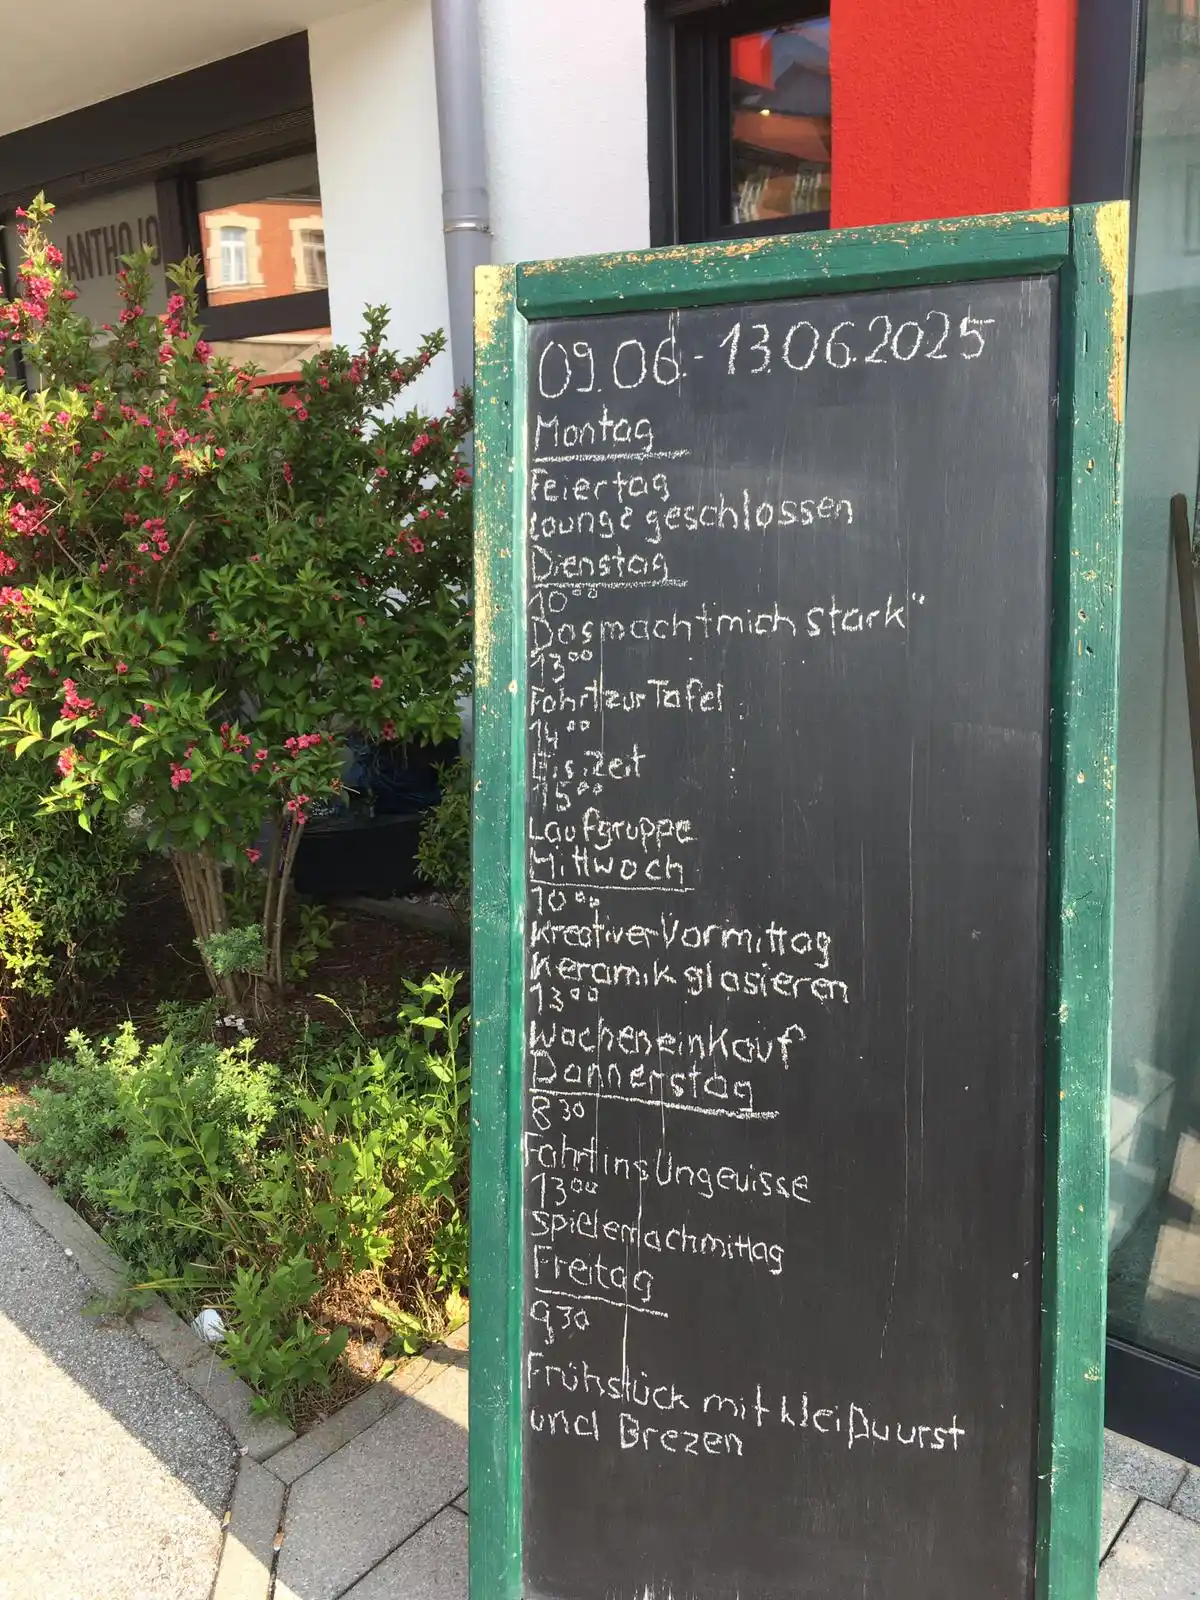 ANTHOLO
09.06.-13.06.2025
Montag
Feiertag
Lounge geschlossen
Dienstag
10⁰⁰
Das macht mich stark"
13⁰⁰
Fahrt zur Tafel
14⁰⁰
Eis.Zeit
15⁰⁰
Laufgruppe
Mittwoch
10⁰⁰
Kreativer Vormittag
Keramik glasieren
13⁰⁰
Wocheneinkauf
Donnerstag
8³⁰
Fahrt ins Ungewisse
13⁰⁰
Spielenachmittag
Freitag
9³⁰
Frühstück mit
und Brezen